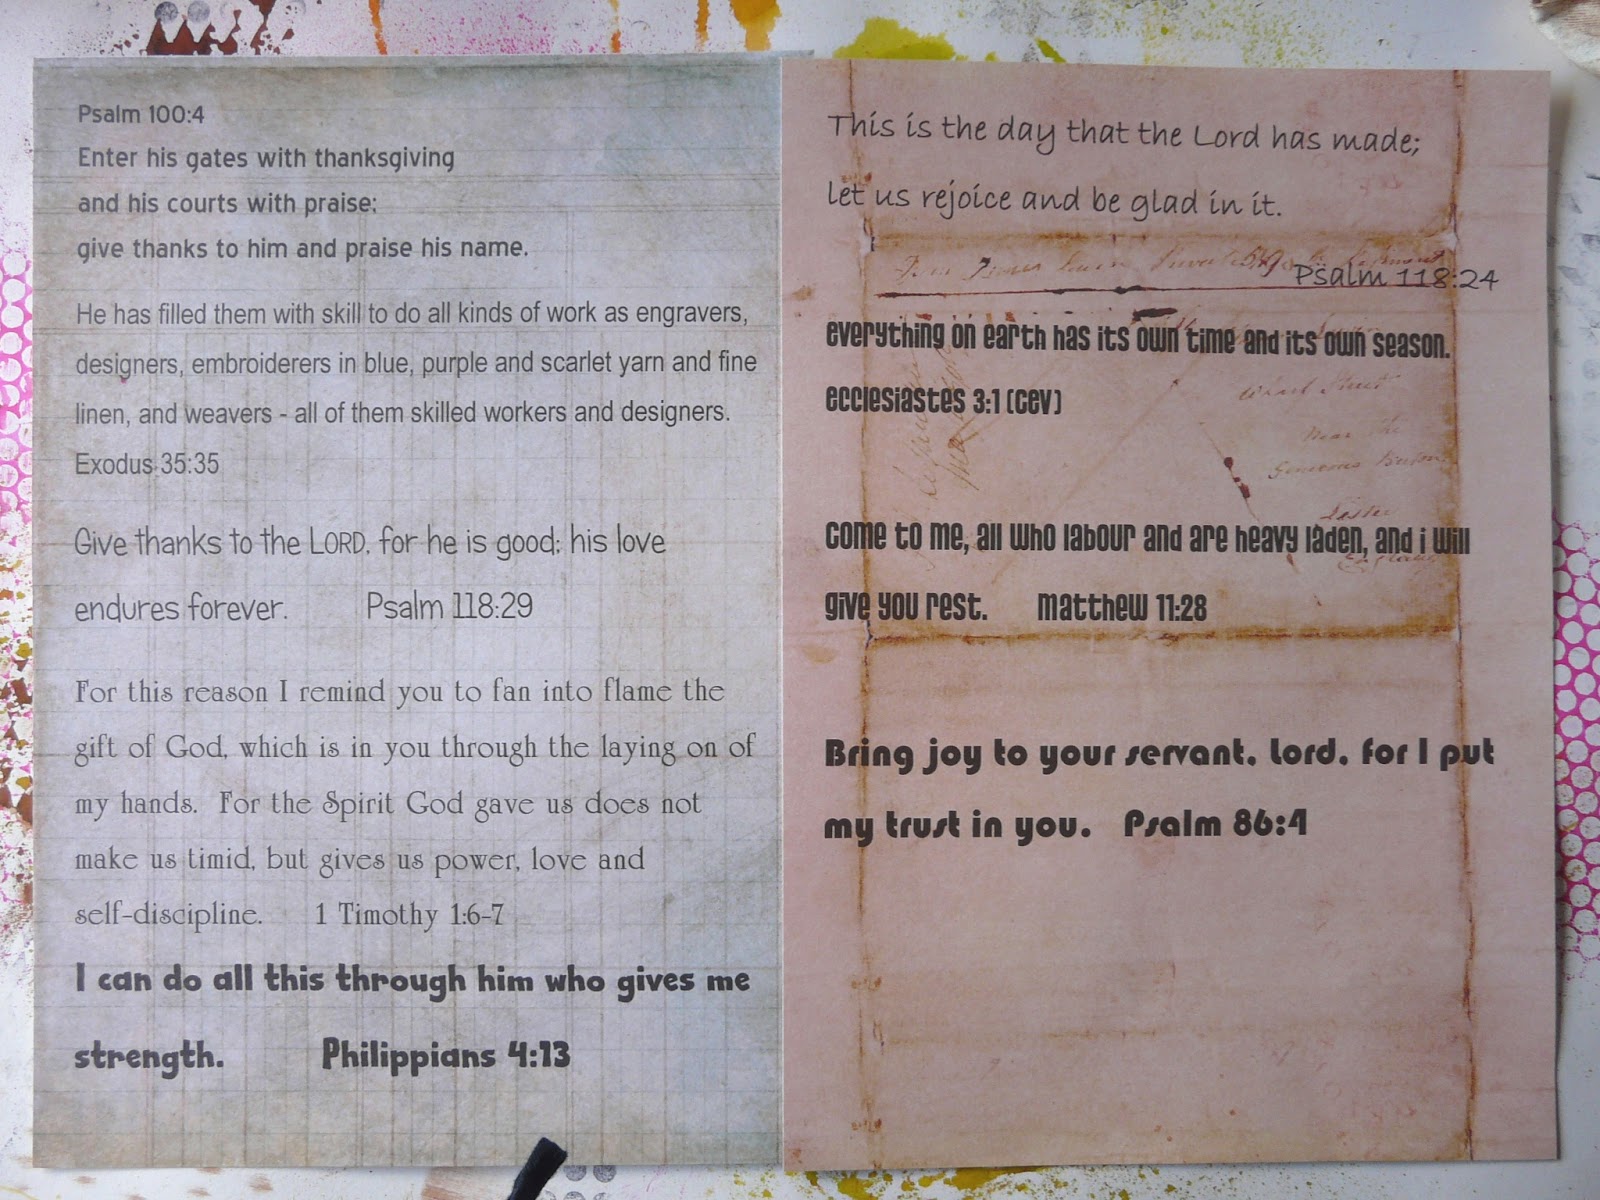 Psalm 100:4
Enter his gates with thanksgiving
and his courts with praise;
give thanks to him and praise his name.
He has filled them with skill to do all kinds of work as engravers,
designers, embroiderers in blue, purple and scarlet yarn and fine
linen, and weavers - all of them skilled workers and designers.
Exodus 35:35
Give thanks to the LORD, for he is good; his love
endures forever. Psalm 118:29
For this reason I remind you to fan into flame the
gift of God, which is in you through the laying on of
my hands. For the Spirit God gave us does not
make us timid, but gives us power, love and
self-discipline. 1 Timothy 1:6-7
I can do all this through him who gives me
strength. Philippians 4:13
This is the day that the Lord has made;
let us rejoice and be glad in it.
Psalm 118:24
everything on earth has its own time and its own season.
ecclesiastes 3:1 (cev)
Street
Near the
come to me, all who labour and are heavy laden, and i will
give you rest. matthew 11:28
Bring joy to your servant, Lord, for I put
my trust in you. Psalm 86:4